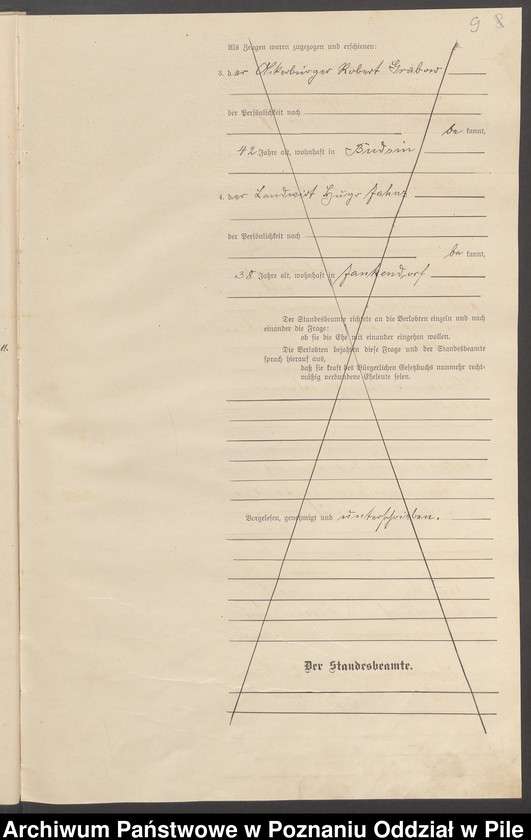 98
Als Zeugen waren zugezogen und erschienen:
3. der Ackerbürger Robert Grabow
der Persönlichkeit nach
be kannt,
42 Jahre alt, wohnhaft in Budsin
4. der Landwirt Hugo Jahnz
der Persönlichkeit nach
be kannt,
38 Jahre alt, wohnhaft in Jankendorf
Der Standesbeamte richtete an die Verlobten einzeln und nach
einander die Frage:
ob sie die Ehe mit einander eingehen wollen.
Die Verlobten bejahten diese Frage und der Standesbeamte
sprach hierauf aus,
daß sie kraft des Bürgerlichen Gesetzbuchs nunmehr recht-
mäßig verbundene Eheleute seien.
11.
Vorgelesen, genehmigt und unterschrieben.
Der Standesbeamte.
Archiwum Państwowe w Poznaniu Oddział w Pile